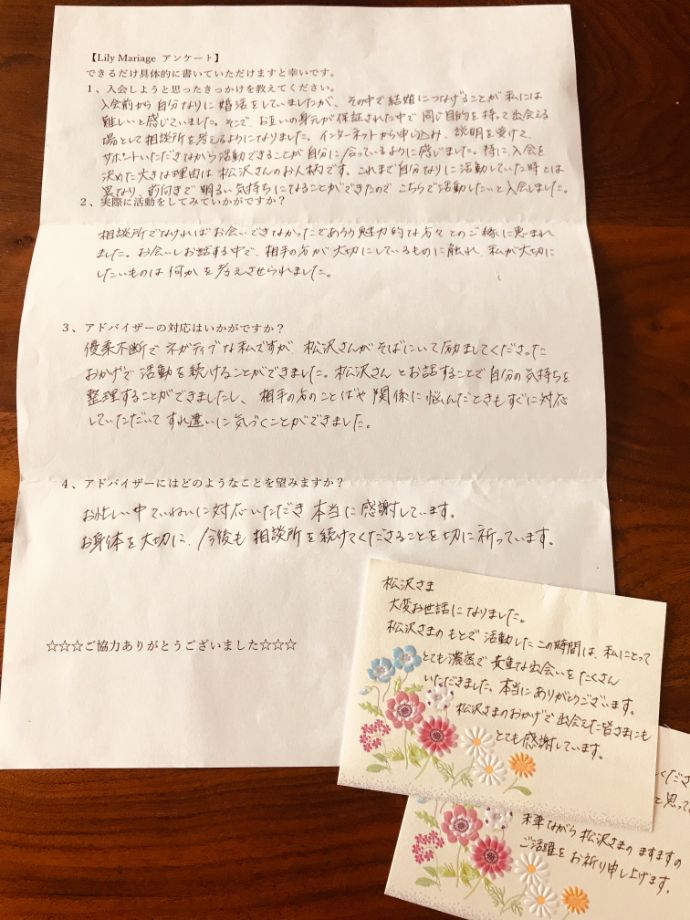 【Lily Mariage アンケート】
できるだけ具体的に書いていただけますと幸いです。
1、入会しようと思ったきっかけを教えてください。
入会前から自分なりに婚活をしていましたが、その中で結婚につなげることが私には
難しいと感じていました。そこでお互いの身元が保証された中で同じ目的を持って出会える
場として相談所を考えるようになりました。インターネットから申し込み、説明を受けて
サポートいただきながら活動できることが自分に合っているように感じました。特に、入会を
決めた大きな理由は松沢さんのお人柄です。これまで自分なりに活動していた時とは
異なり、前向きで明るい気持ちになることができたのでこちらで活動したいと入会しました。
2、実際に活動をしてみていかがですか?
相談所でなければお会いできなかったであろう魅力的な方々とのご縁に恵まれ
ました。お会いしお話する中で、相手の方が大切にしているものに触れ、私が大切に
したいものは何かを考えさせられました。
3、アドバイザーの対応はいかがですか?
優柔不断でネガティブな私ですが、松沢さんがそばにいて励ましてくださった
おかげで活動を続けることができました。松沢さんとお話することで自分の気持ちを
整理することができましたし、相手の方のことばや関係に悩んだときもすぐに対応
していただいてすれ違いに気づくことができました。
4、アドバイザーにはどのようなことを望みますか?
お忙しい中ていねいに対応いただき本当に感謝しています。
お身体を大切に、今後も相談所を続けてくださることを切に祈っています。
☆☆☆ご協力ありがとうございました☆☆☆
松沢さま
大変お世話になりました。
松沢さまのもとで活動したこの時間は、私にとって
とても濃密で貴重な出会いをたくさん
いただきました。本当にありがとうございます。
松沢さまのおかげで出会えた皆さまにも
とても感謝しています。
くださ
と思って
末筆ながら松沢さまのますますの
ご活躍をお祈り申し上げます。